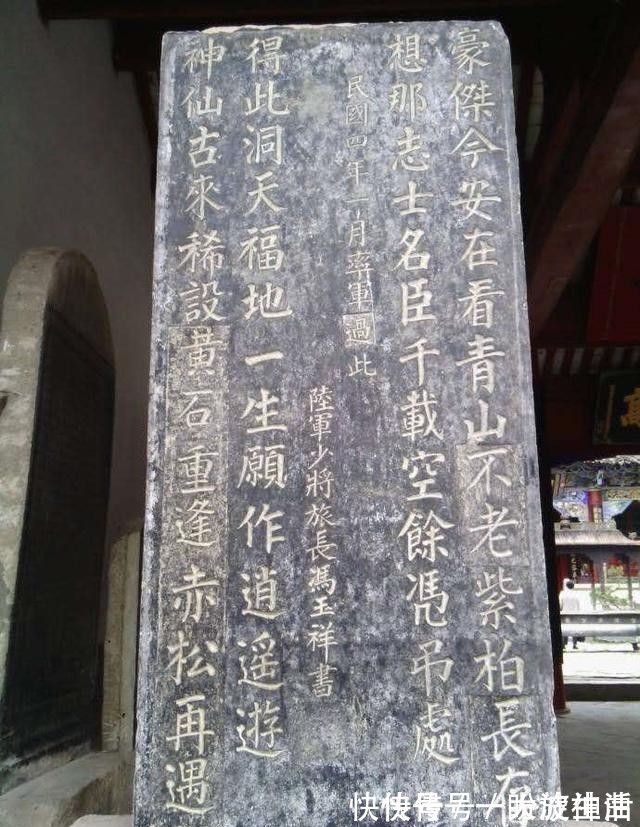 豪傑今安在看青山不老紫柏長存
想那志士名臣千載空餘慿吊處
民國四年一月率軍過此
陸軍少將旅長馮玉祥書
得此洞天福地一生願作逍遙遊
神仙古來稀設黃石重逢赤松再遇